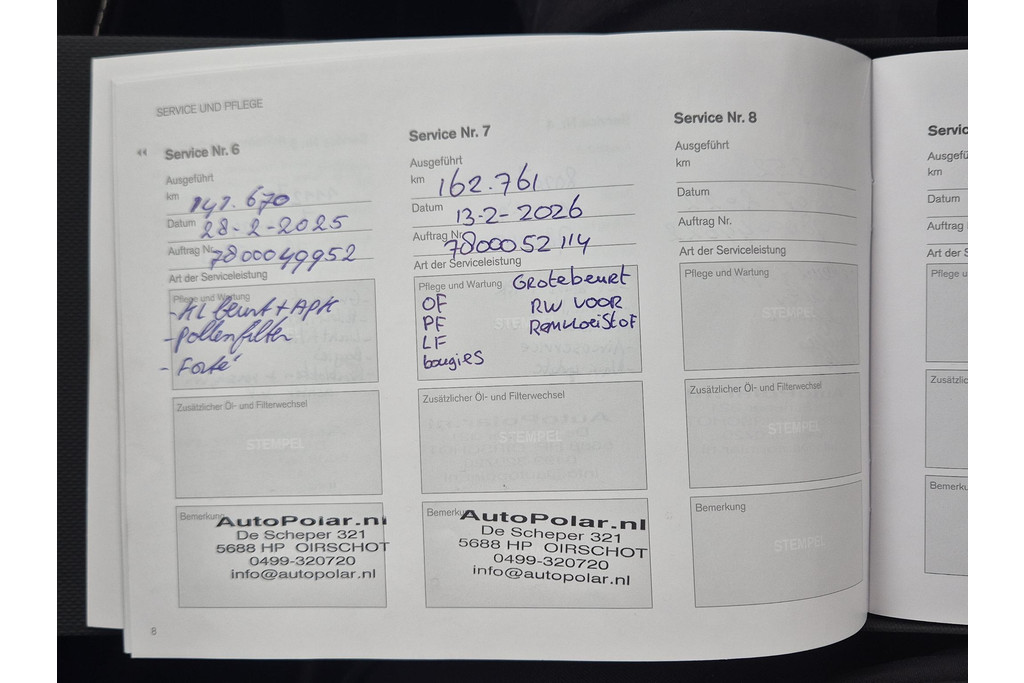 SERVICE UND PFLEGE
Service Nr. 6
Ausgeführt
km 141.670
Datum 28-2-2025
Auftrag Nr. 7800049952
Art der Serviceleistung
Pflege und Wartung
- KL beurt + APK
- pollenfilter
- Forté
Zusätzlicher Öl- und Filterwechsel
STEMPEL
Bemerkung
AutoPolar.nl
De Scheper 321
5688 HP OIRSCHOT
0499-320720
info@autopolar.nl
8
Service Nr. 7
Ausgeführt
km 162.761
Datum 13-2-2026
Auftrag Nr. 7800052114
Art der Serviceleistung
Pflege und Wartung Grotebeurt
OF RW VOOR
PF Remvloeistof
LF
bougies
STEMPEL
Zusätzlicher Öl- und Filterwechsel
STEMPEL
Bemerkung
AutoPolar.nl
De Scheper 321
5688 HP OIRSCHOT
0499-320720
info@autopolar.nl
Service Nr. 8
Ausgeführt
km
Datum
Auftrag Nr.
Art der Serviceleistung
Pflege und Wartung
STEMPEL
Zusätzlicher Öl- und Filterwechsel
STEMPEL
Bemerkung
STEMPEL
Servic
Ausgefü
km
Datum
Auftrag
Art der S
Pflege u
Zusätzlic
Bemerku